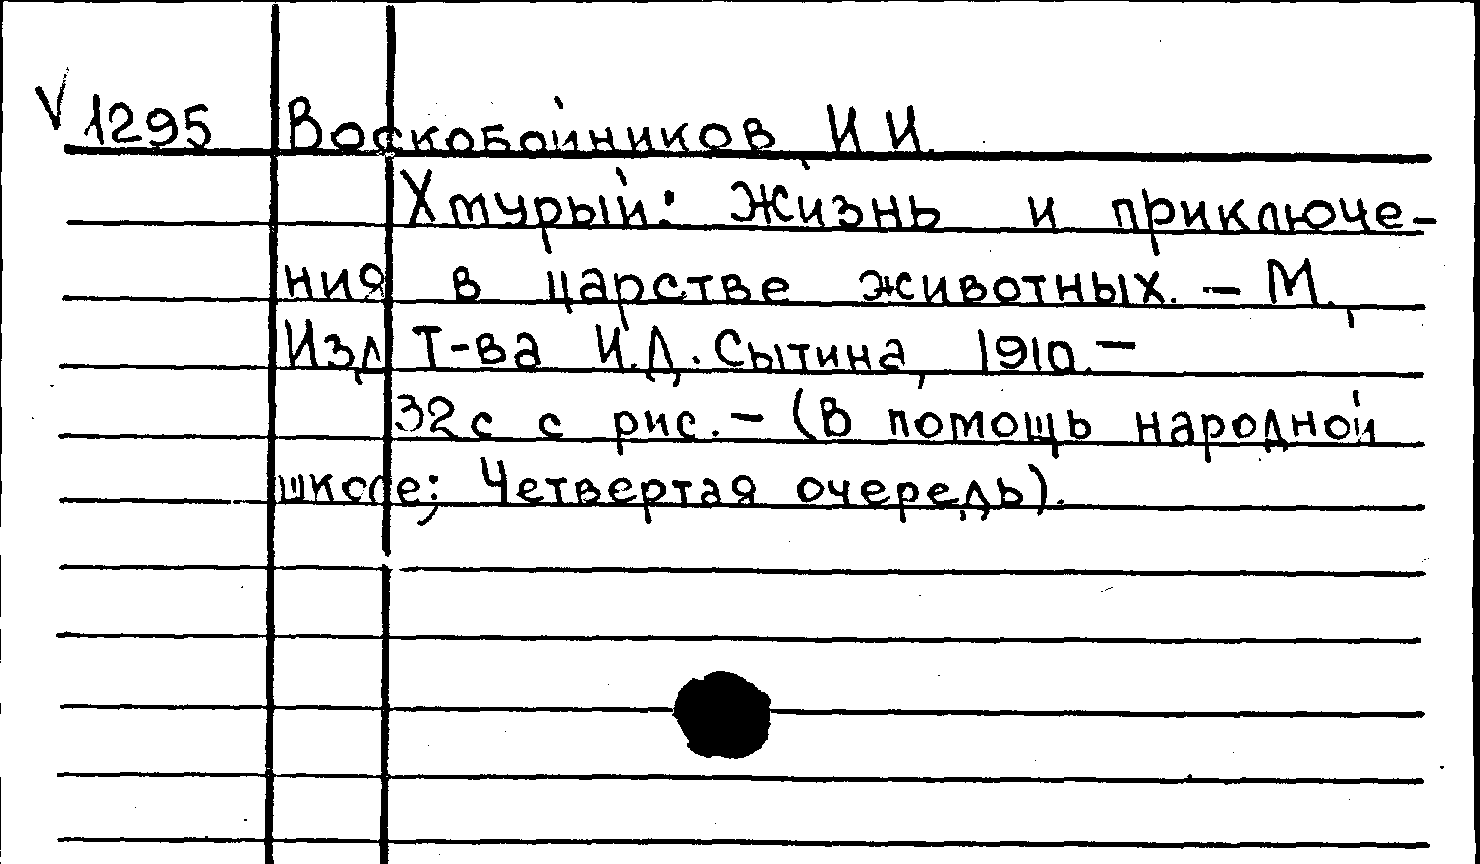 V 1295 Воскобойников, И.И.
Хмурый: Жизнь и приключе-
ния в царстве животных. – М.,
Изд. Т-ва И.Д. Сытина, 1910. –
32с с рис. – (В помощь народной
школе; Четвертая очередь).